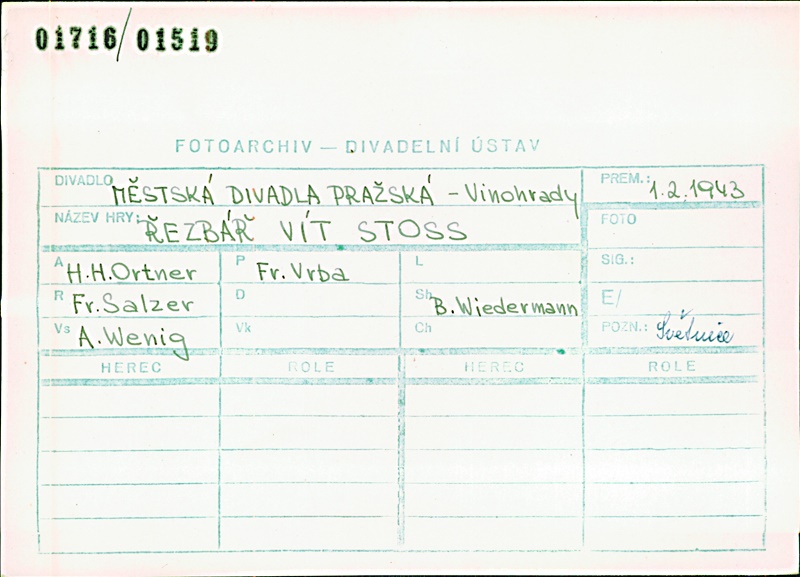 01716/01519
FOTOARCHIV — DIVADELNÍ ÚSTAV
DIVADLO MĚSTSKÁ DIVADLA PRAŽSKÁ - Vinohrady PREM.: 1.2.1943
NÁZEV HRY: ŘEZBÁŘ VÍT STOSS FOTO
A H.H.Ortner P Fr.Vrba L SIG.:
R Fr.Salzer D Sh B.Wiedermann E/
Vs A.Wenig Vk Ch POZN.: Světnice
HEREC ROLE HEREC ROLE